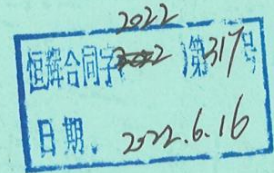 2022
恒辉合同字( )第317号
日期. 2022.6.16